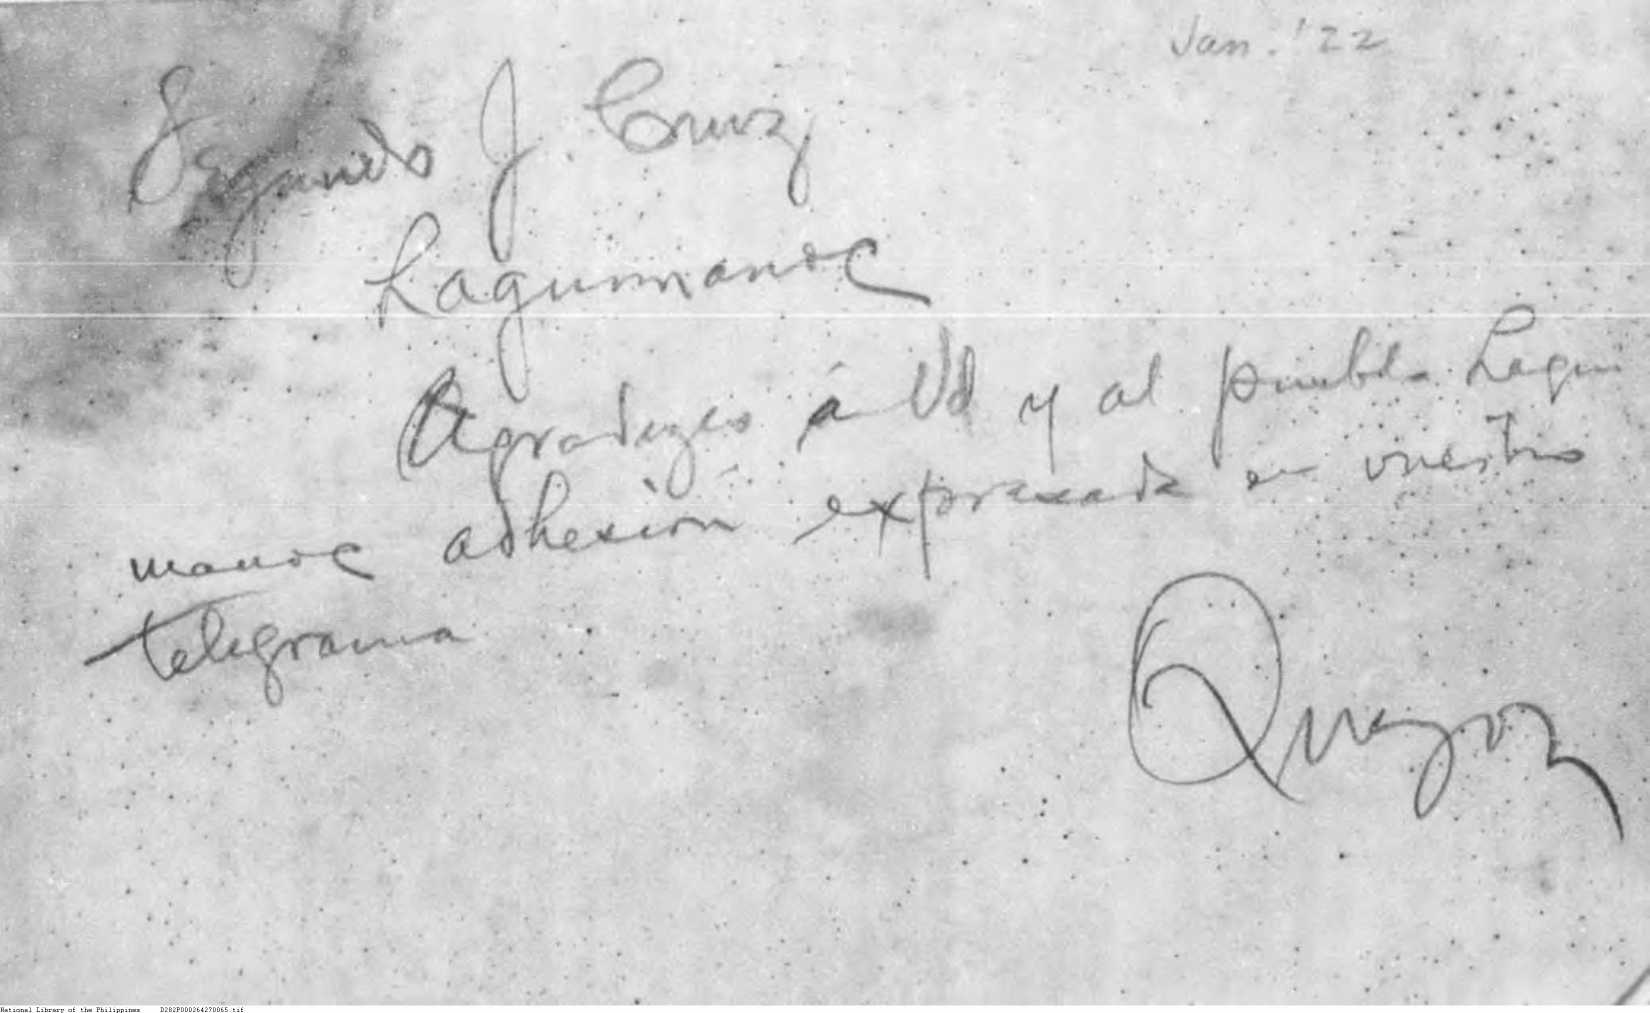 Jan. '22
Segundo J. Cruz
Lagumanoc
Agradezco á Vd y al pueblo Lagui
manoc adhesión expresada en vuestro
telegrama
Quezon
National Library of the Philippines D282P000264270065.tif